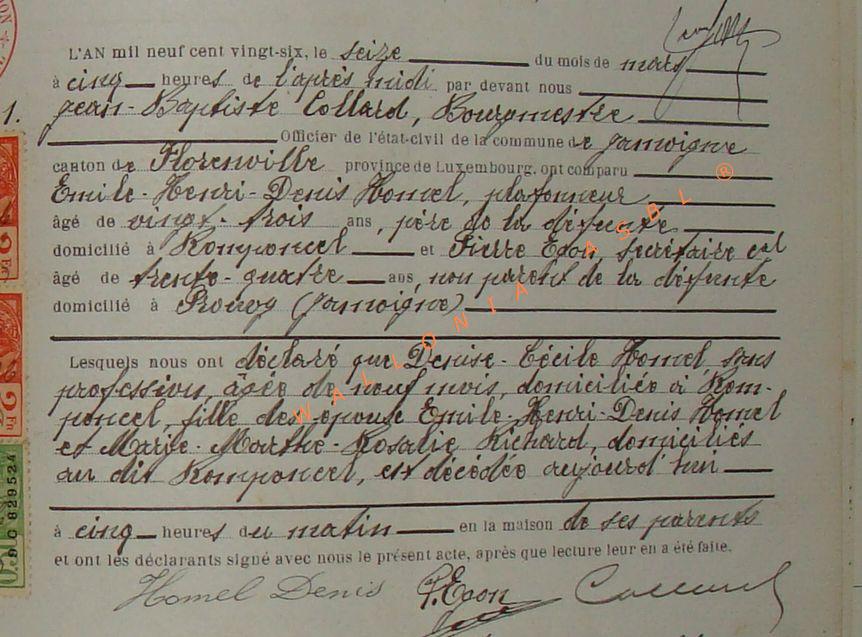 L'AN mil neuf cent vingt-six, le seize du mois de mars
à cinq heures de l'après midi par devant nous
1. Jean-Baptiste Collard, Bourgmestre
Officier de l'état-civil de la commune de Jamoigne
canton de Florenville province de Luxembourg, ont comparu
Emile-Henri-Denis Homel, plafonneur
âgé de vingt-trois ans, père de la défunte
domicilié à Romponcel et Pierre Edon, secrétaire cal
âgé de trente-quatre ans, non parent de la défunte
domicilié à Prouvy (Jamoigne)
Lesquels nous ont déclaré que Denise-Cécile Homel, sans
profession, âgée de neuf mois, domiciliée à Rom-
poncel, fille des époux Emile-Henri-Denis Homel
et Marie-Marthe-Rosalie Richard, domiciliés
au dit Romponcel, est décédée aujourd'hui
à cinq heures du matin en la maison de ses parents
et ont les déclarants signé avec nous le présent acte, après que lecture leur en a été faite.
Homel Denis P. Edon Collard
WALLONIA ASBL ®
2 Fr
2 Fr
9C 829524